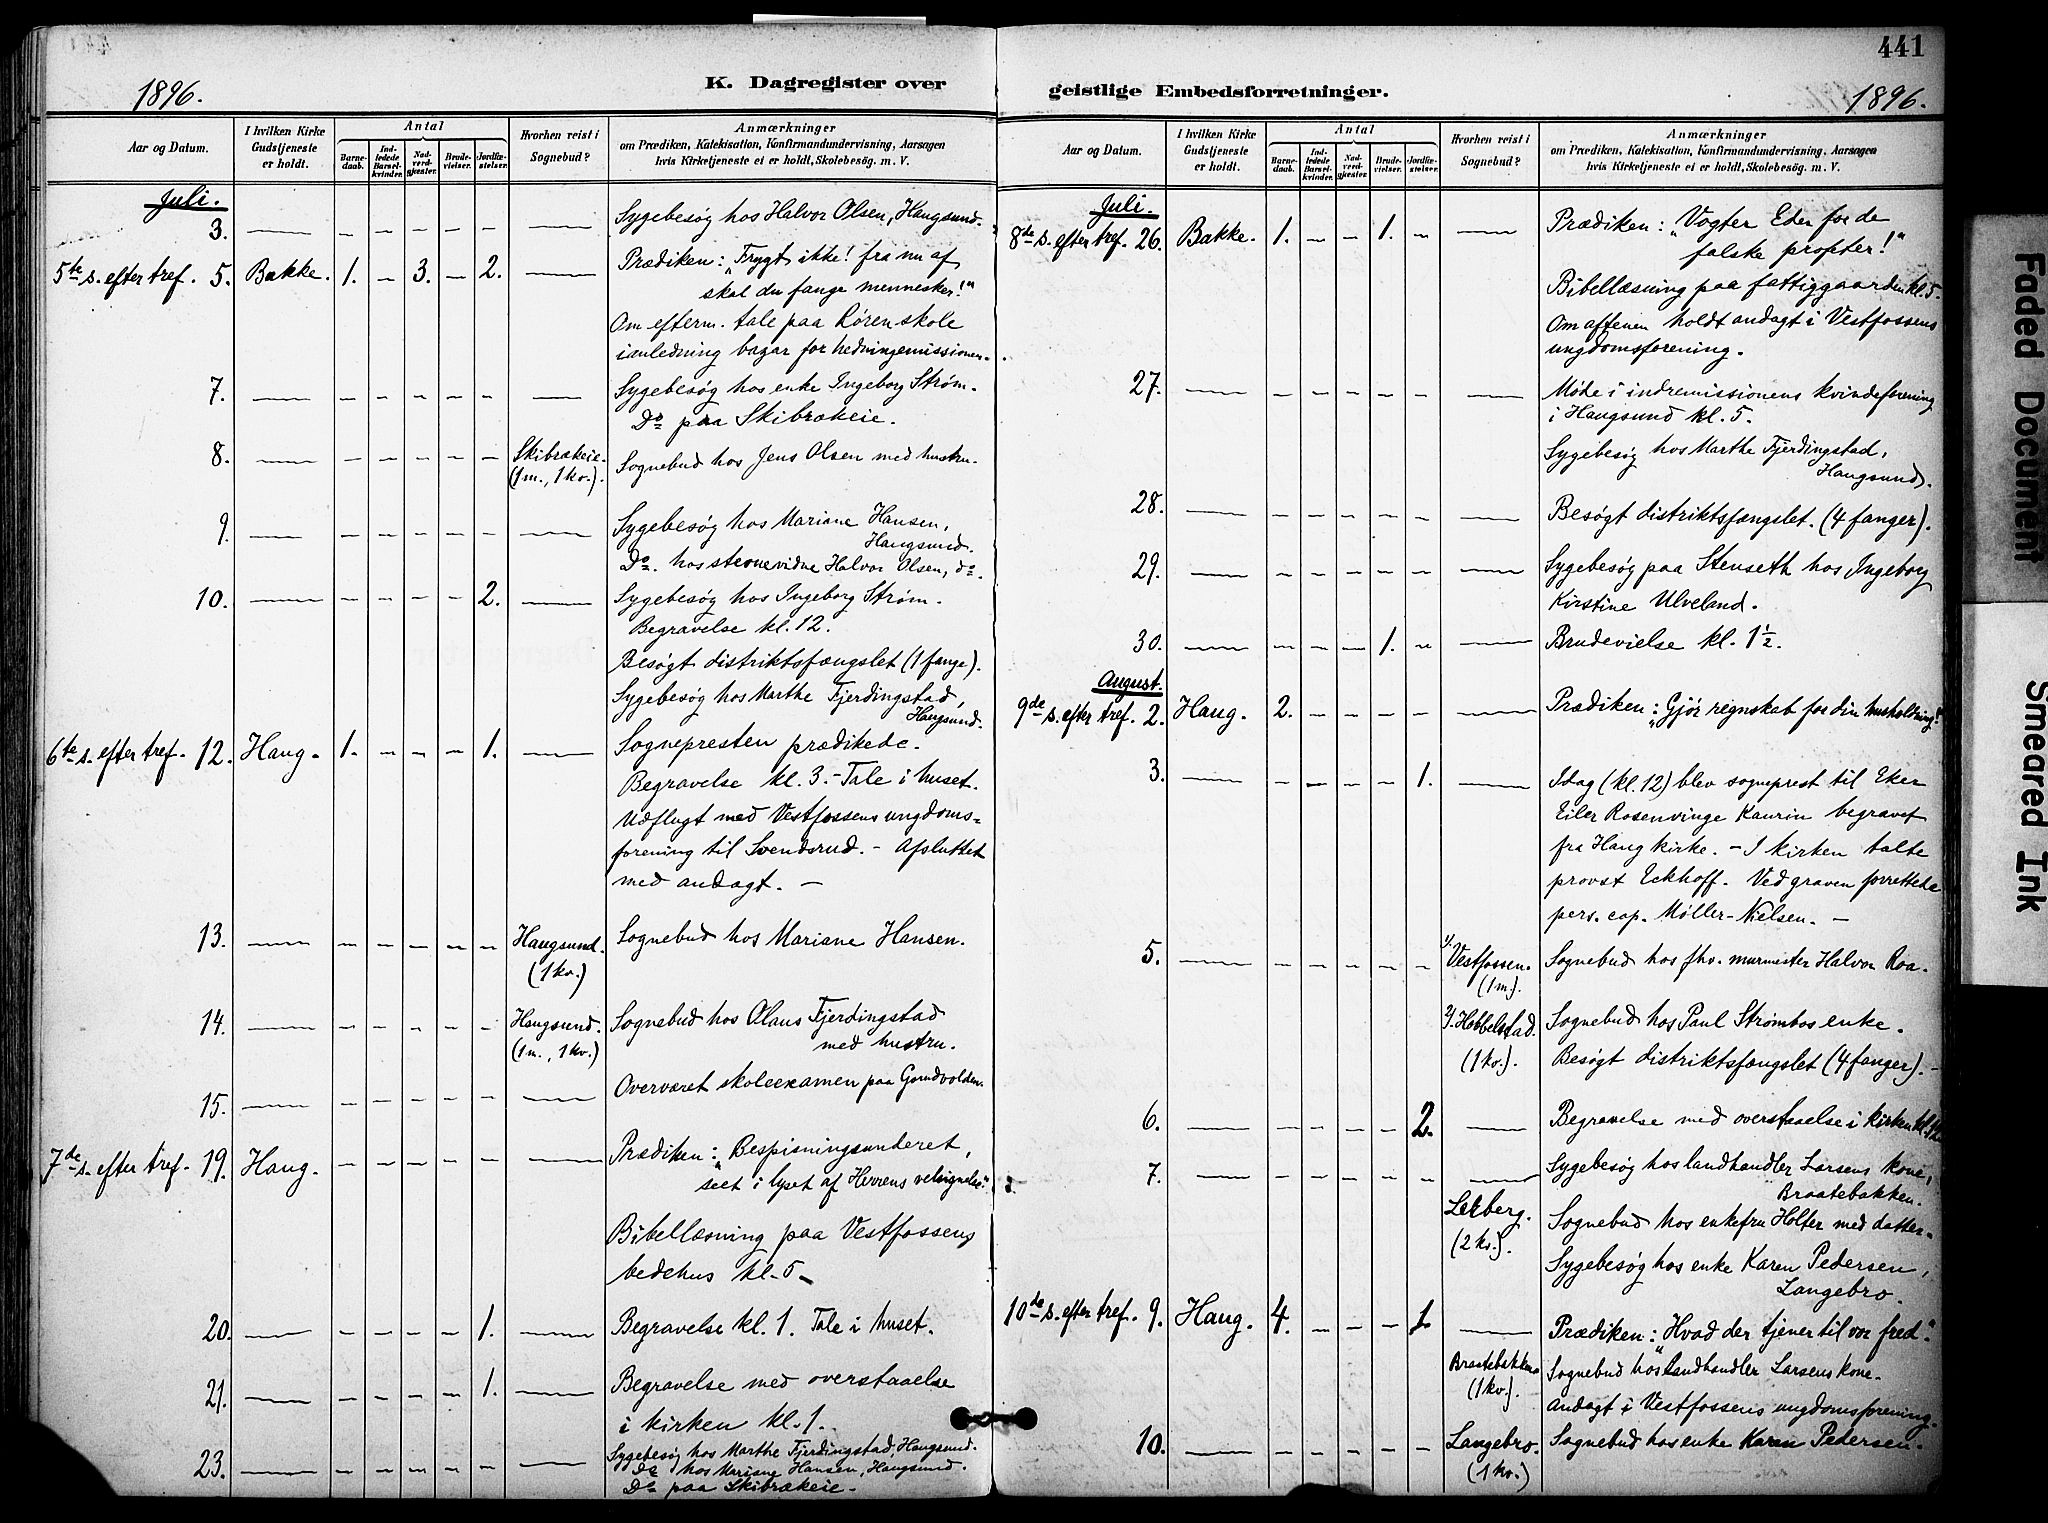 441
1896.
K. Dagregister over
geistlige Embedsforretninger.
1896.
Aar og Datum.
I hvilken Kirke Gudstjeneste er holdt.
Antal
Barnedaab.
Indledede Barselkvinder.
Nadverdgjæster.
Brudevielser.
Jordfæstelser.
Hvorhen reist i Sognebud?
Anmærkninger
om Prædiken, Katekisation, Konfirmandundervisning, Aarsagen
hvis Kirketjeneste ei er holdt, Skolebesøg. m. V.
Juli.
3. — — — — — — — Sygebesøg hos Halvor Olsen, Haugsund.
5te s. efter tref. 5. Bakke. 1. — 3. — 2. — Prædiken: „Frygt ikke! fra nu af
skal du fange mennesker!"
Om efterm. tale paa Røren skole
i anledning bazar for hedningemissionen.
7. — — — — — — — Sygebesøg hos enke Ingeborg Strøm.
Do paa Skibrækeie.
8. — — — — — — Skibrækeie. (1 m., 1 kv.). Sognebud hos Jens Olsen med hustru.
9. — — — — — — — Sygebesøg hos Mariane Hansen,
Haugsund.
Do. hos stevnevidne Halvor Olsen, do.
10. — — — — — 2. — Sygebesøg hos Ingeborg Strøm.
Begravelse kl. 12.
Besøgt distriktsfængslet (1 fange).
Sygebesøg hos Marthe Fjerdingstad,
Haugsund.
6te s. efter tref. 12. Haug. 1. — — — 1. — Sognepresten prædikede.
Begravelse kl. 3. – Tale i huset.
Udflugt med Vestfossens ungdoms=
forening til Svendsrud. – Afsluttet
med andagt. —
13. — — — — — — Haugsund. (1 kv.) Sognebud hos Mariane Hansen.
14. — — — — — — Haugsund. (1 m., 1 kv.) Sognebud hos Olaus Fjerdingstad
med hustru.
15. — — — — — — — Overværet skoleexamen paa Grundvolden.
7de s. efter tref. 19. Haug. — — — — — — Prædiken: „Bespisningsunderet,
seet i lyset af Herrens velsignelse."
Bibellæsning paa Vestfossens
bedehus kl. 5.
20. — — — — — 1. — Begravelse kl. 1. Tale i huset.
21. — — — — — 1. — Begravelse med overstaaelse
i kirken kl. 1.
23. — — — — — — — Sygebesøg hos Marthe Fjerdingstad, Haugsund.
Do hos Mariane Hansen, Haugsund.
Do paa Skibrækeie.
Aar og Datum.
I hvilken Kirke Gudstjeneste er holdt.
Antal
Barnedaab.
Indledede Barselkvinder.
Nadverdgjæster.
Brudevielser.
Jordfæstelser.
Hvorhen reist i Sognebud?
Anmærkninger
om Prædiken, Katekisation, Konfirmandundervisning, Aarsagen
hvis Kirketjeneste ei er holdt, Skolebesøg. m. V.
Juli.
8de s. efter tref. 26. Bakke. 1. — — 1. — — Prædiken: „Vogter Eder for de
falske profeter!"
Bibellæsning paa fattiggaarden kl. 5.
Om aftenen holdt andagt i Vestfossens
ungdomsforening.
27. — — — — — — — Møde i indremissionens kvindeforening
i Haugsund kl. 5.
Sygebesøg hos Marthe Fjerdingstad,
Haugsund.
28. — — — — — — — Besøgt distriktsfængslet. (4 fanger).
29. — — — — — — — Sygebesøg paa Stenseth hos Ingeborg
Kirstine Ulveland.
30. — — — — 1. — — Brudevielse kl. 1½.
August.
9de s. efter tref. 2. Haug. 2. — — — — — Prædiken: „Gjør regnskab for din husholdning!"
3. — — — — — 1. — Idag (kl. 12) blev sogneprest til Eker
Eiler Rosenvinge Kaurin begravet
fra Haug kirke. – I kirken talte
provst Eckhoff. Ved graven forrettede
pers. cap. Møller-Nielsen. —
5. — — — — — — 1/. Vestfossen. (1 m.). Sognebud hos fhv. murmester Halvor Roa.
2/. Hobbelstad. (1 kv.). Sognebud hos Paul Strømbos enke.
Besøgt distriktsfængslet (4 fanger). –
6. — — — — — 2. — Begravelse med overstaaelse i kirken kl.
7. — — — — — — — Sygebesøg hos landhandler Larsens kone,
Braatebakken.
Lerberg. (2 kv.). Sognebud hos enkefru Holter med datter.
Sygebesøg hos enke Karen Pedersen,
Langebro.
10de s. efter tref. 9. Haug. 4. — — — 1. — Prædiken: „Hvad der tjener til vor fred."
Braatebakken (1 kv.). Sognebud hos landhandler Larsens kone.
Andagt i Vestfossens ungdomsforening.
10. — — — — — — Langebro. (1 kv.) Sognebud hos enke Karen Pedersen.
Faded Document
Smeared Ink